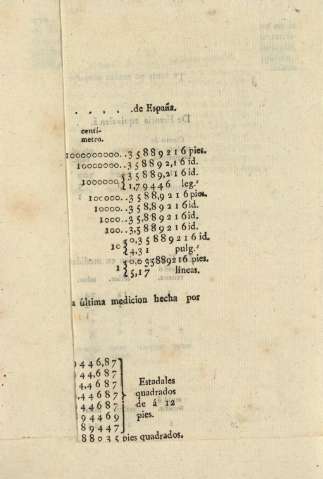 . . . . . .de España.
centi-
metro.
100000000..35889216 pies.
10000000..358892,16 id.
1000000 { 35889,216 id.
1,79446 leg.ˢ
100000..3588,9216 pies.
10000..358,89216 id.
1000..35,889216 id.
100..3,5889216 id.
10 { 0,35889216 id.
4,31 pulg.ˢ
1 { 0,035889216 pies.
5,17 líneas.
a última medicion hecha por
9446,87
44,687
4,4687
,44687
44687
94469
89447
Estadales
quadrados
de á 12
pies.
88035 pies quadrados.